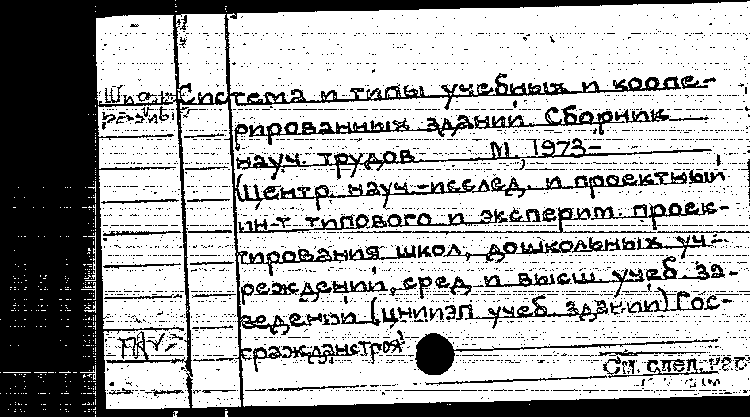 Система и типы учебных и коопе-
рированных зданий. Сборник
науч. трудов М., 1973-
(Центр. науч.-исслед. и проектный
ин-т типового и эксперим. проек-
тирования школ, дошкольных уч-
реждений, сред. и высш. учеб. за-
ведений (ЦНИИЭП учеб. зданий) Гос-
гражданстроя)
См. след. кар